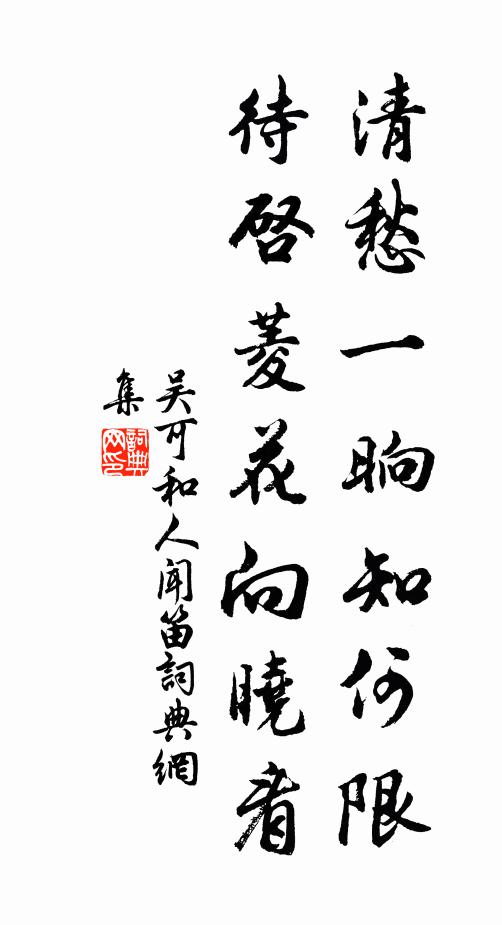 清愁一晌知何限
待啓菱花向曉看
吳可和人聞笛詞典網
集
詞典网印